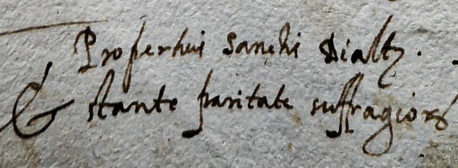 Propertius Sanchi Dialtz.
& stante paritate suffragiorū